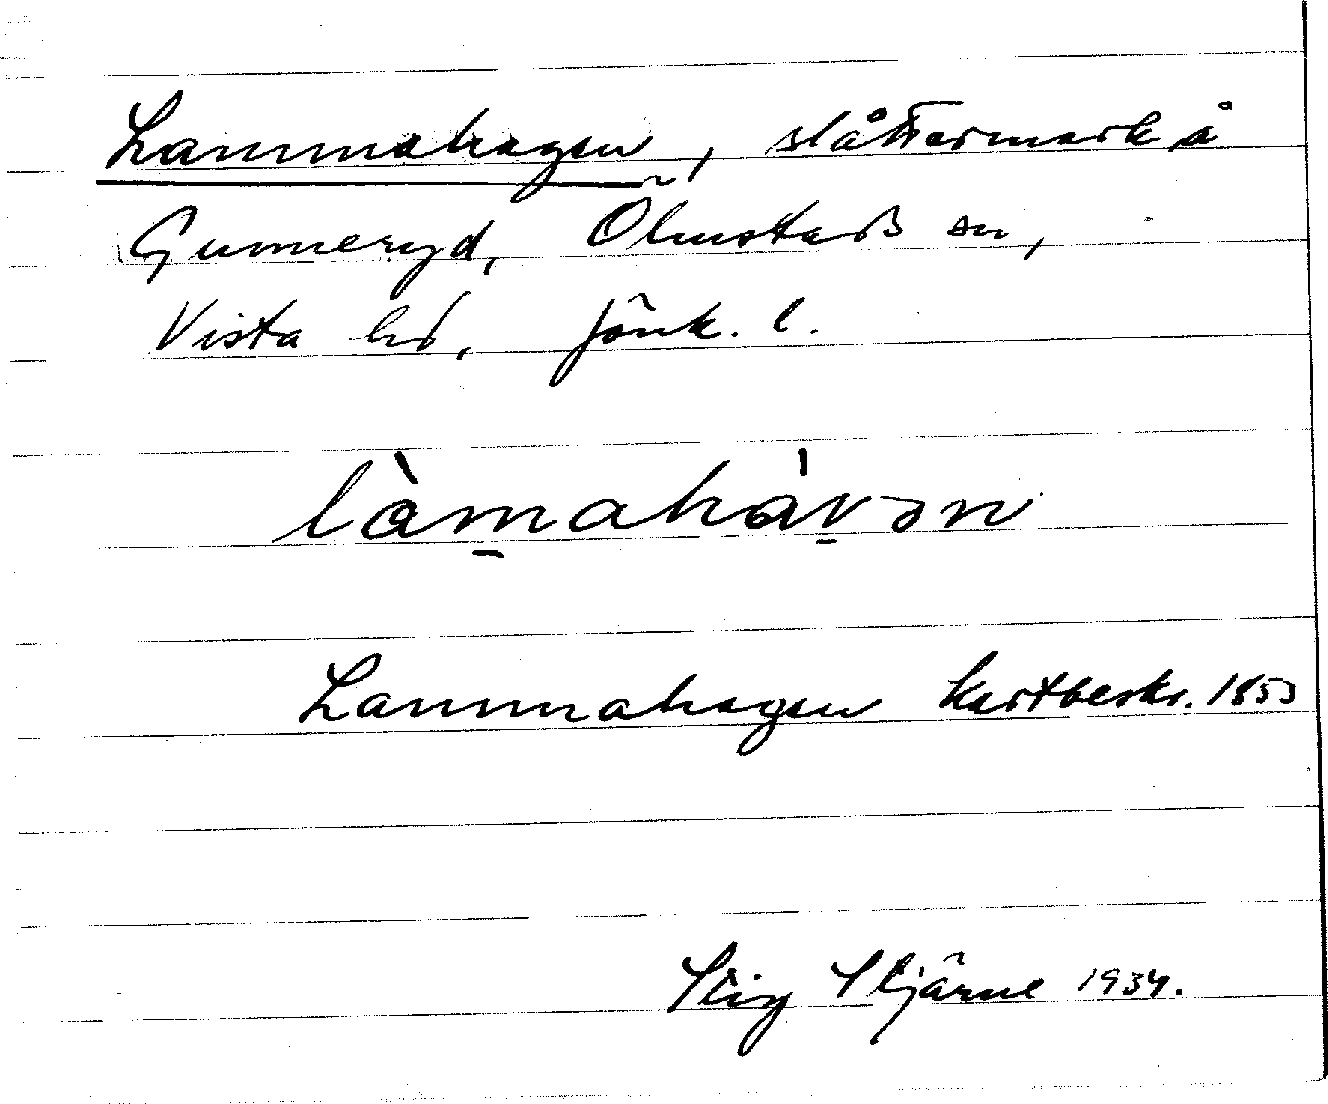 Lammahagen, slåttermark å
Gunneryd, Ölmstads sn,
Vista hd, Jönk. l.
làm̱ahàv̱ən
Lammahagen kartbeskr. 1853
Stig Stjärne 1934.